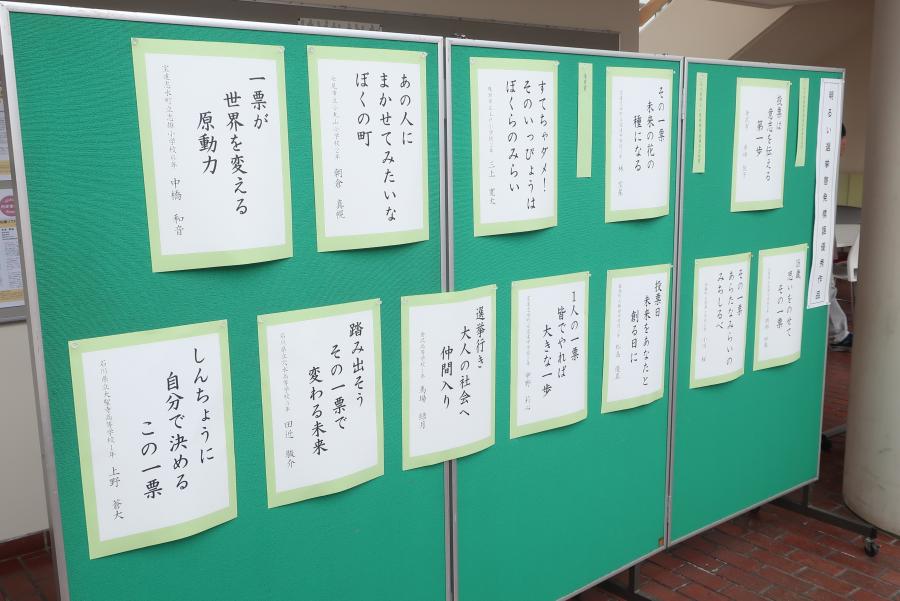 明るい選挙啓発標語優秀作品
投票は
意志を伝える
第一歩
その一票
未来の花の
種になる
すてちゃダメ！
そのいっぴょうは
ぼくらのみらい
あの人に
まかせてみたいな
ぼくの町
朝倉 真幌
一票が
世界を変える
原動力
宝達志水町立志雄小学校六年 中橋 和音
18歳
思いをのせて
その一票
その一票
あらたなみらいの
みちしるべ
投票日
未来をあなたと
創る日に
1人の一票
皆でやれば
大きな一歩
選挙行き
大人の社会へ
仲間入り
馬場 結月
踏み出そう
その一票で
変わる未来
田辺 駿介
しんちょうに
自分で決める
この一票
石川県立大聖寺高等学校1年 上野 蒼大